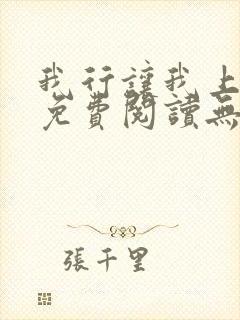 我行讓我上
免費閱讀無
張千里